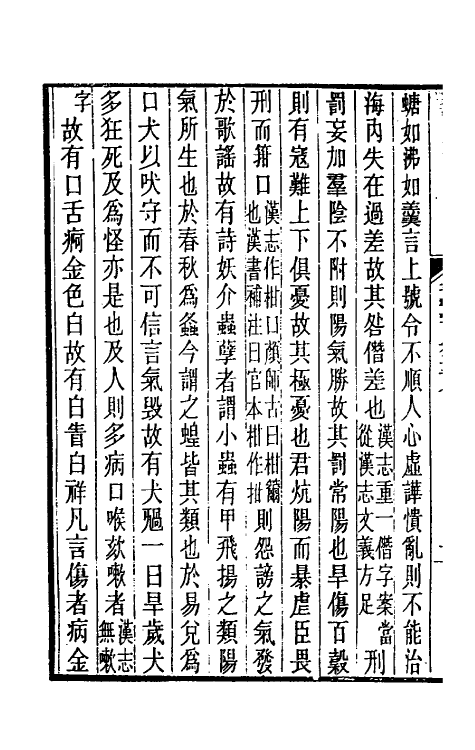 螗如沸如羹言上號令不順人心虛譁憒亂則不能治
海內失在過差故其咎僭差也漢志重一僭字案當從漢志文義方足刑
罰妄加羣陰不附則陽氣勝故其罰常陽也旱傷百穀
則有寇難上下俱憂故其極憂也君炕陽而暴虐臣畏
刑而箝口漢志作柑口顏師古曰柑籋也漢書補注曰官本柑作拑則怨謗之氣發
於歌謠故有詩妖介蟲孽者謂小蟲有甲飛揚之類陽
氣所生也於春秋為螽今謂之蝗皆其類也於易兌為
口犬以吠守而不可信言氣毀故有犬禍一曰旱歲犬
多狂死及為怪亦是也及人則多病口喉欬嗽者漢志無嗽
字故有口舌痾金色白故有白眚白祥凡言傷者病金